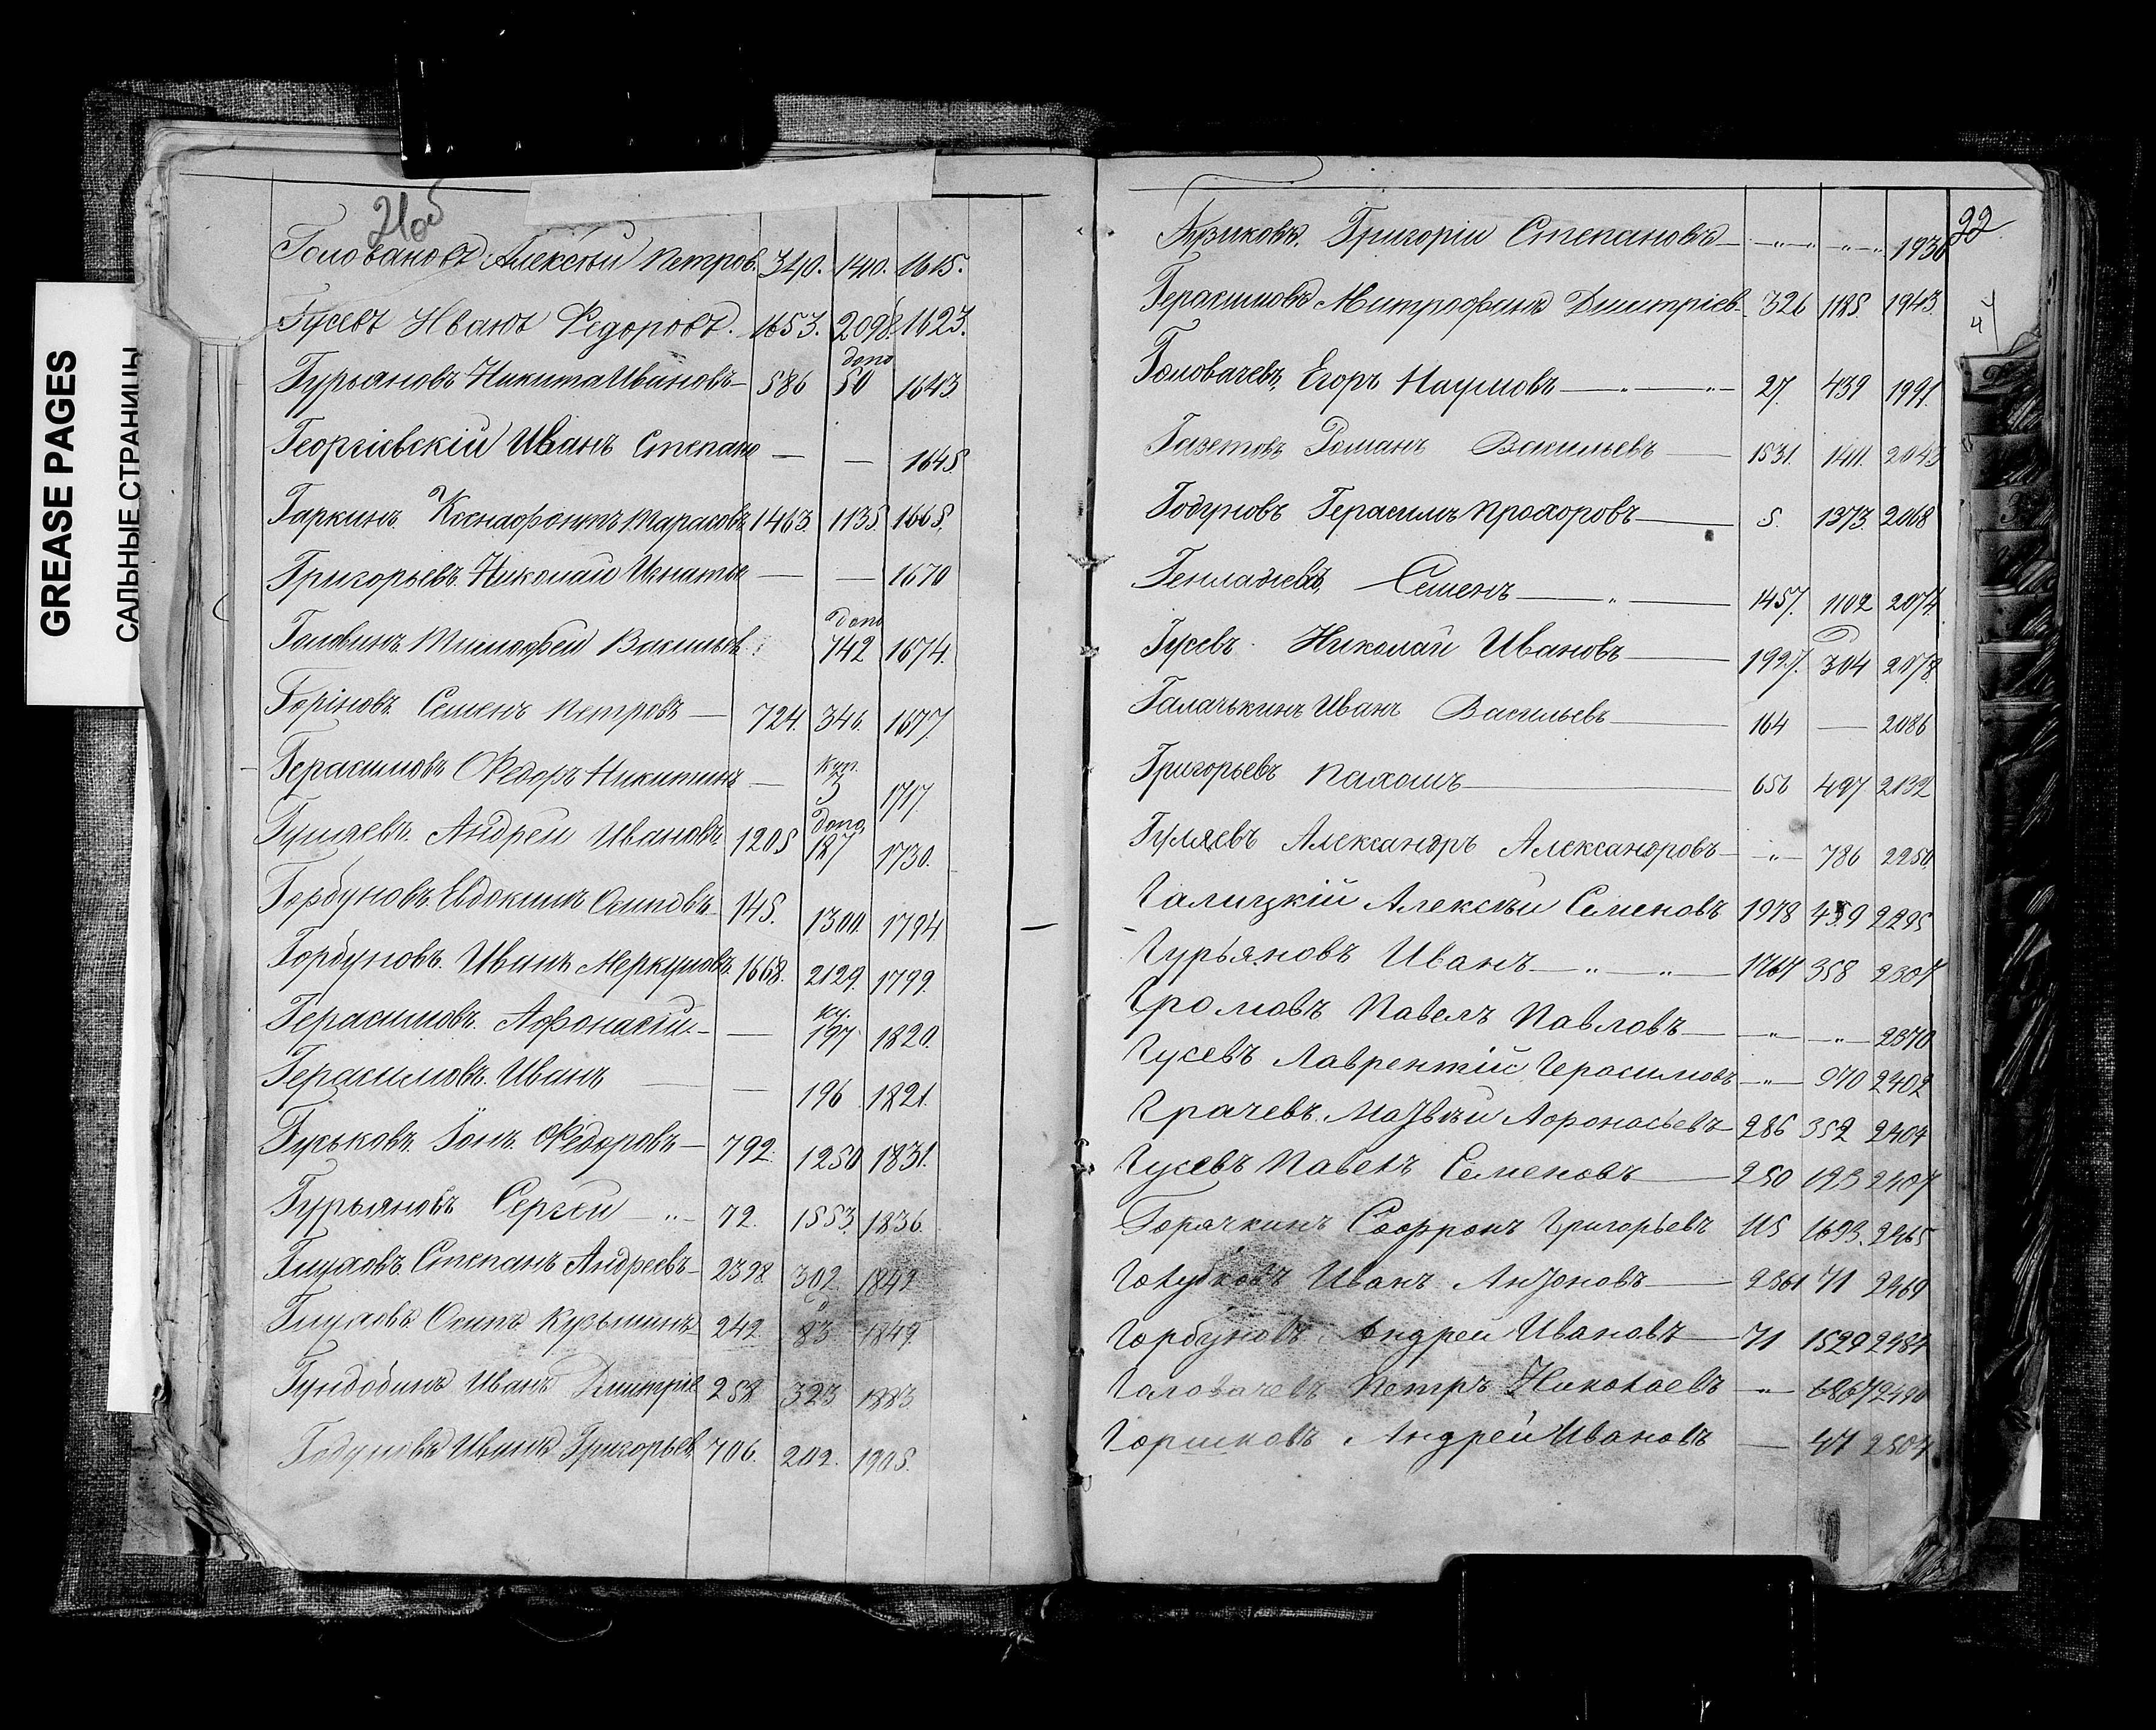 GREASE PAGES
САЛЬНЫЕ СТРАНИЦЫ
21об
Головановъ Алексѣй Петров. 340. 1410. 1615.
Гусевъ Иванъ Федоровъ. 1653. 2098. 1623.
Гурьяновъ Никита Ивановъ 586 допо 50 1643
Георгіевскій Иванъ Степано — — 1645
Гаркинъ Ксенофонтъ Тарасовъ 1463. 1135. 1665.
Григорьевъ. Николай Игнатье — — 1670
Головинъ Тимофей Васильев допо 742 1674.
Горіновъ Семенъ Петровъ — 724. 346. 1677.
Герасимовъ Федоръ Никитинъ — куп. 3 1717.
Гуляевъ. Андрей Ивановъ 1205 допо. 187 1730.
Горбуновъ. Евдокимъ Осиповъ 145. 1300. 1794.
Горбуновъ. Иванъ Меркуловъ. 1668. 2129. 1799.
Герасимовъ. Афонасій — — ку. 197. 1820.
Герасимовъ. Иванъ — — 196. 1821.
Гуськовъ. Іонъ Федоровъ — 792. 1250 1831.
Гурьяновъ Сергей — „ — 72. 1553. 1836.
Глуховъ. Степанъ Андреевъ — 2328. 302. 1842
Глуховъ Осипъ Кузьминъ 242. д 83 1849.
Гундобинъ Иванъ Дмитріе 258 323 1883.
Годуновъ Иванъ Григорьев 706. 202. 1905.
22
Григорій Степановъ — „ — „ 1936
Герасимовъ Митрофанъ Дмитріев. 326 1185. 1943.
Головачевъ, Егоръ Наумовъ — „ — „ — 27. 439 1991.
Газетовъ Романъ Васильевъ — 1531. 1411. 2043
Годуновъ Герасимъ Прохоровъ — 5. 1373. 2068
Генладіевъ, Семенъ — „ — 1457. 1102 2074.
Гусевъ Николай Ивановъ — 1927. д 304 2078.
Галачькинъ Иванъ Васильевъ — 164 — 2086
Григорьевъ Пахомъ — 656 497 2132
Гуляевъ Александръ Александровъ — „ — 786 2250.
Галицкій Алексѣй Семеновъ 1978 459 2295
Гурьяновъ Иванъ — „ — „ — 1767 358 2307
Громовъ Павелъ Павловъ — „ — „ — 2370
Гусевъ Лаврентій Герасимовъ — „ — 970 2402
Грачевъ. Матвѣй Афонасьевъ 286 352 2404
Гусевъ Павелъ Семеновъ — 250 123 2407
Горячкинъ Софронъ Григорьевъ 115 1693. 2465
Голубковъ Иванъ Антоновъ — 2861 71 2469
Горбуновъ Андрей Ивановъ — 71 1529 2484
Головачевъ Петръ Николаевъ — „ — 2490
Горшковъ Андрей Ивановъ — 47 2504